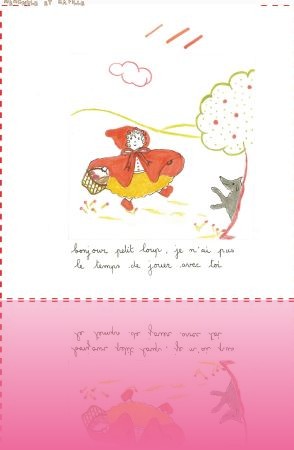 bonjour petit loup, je n'ai pas
le temps de jouer avec toi